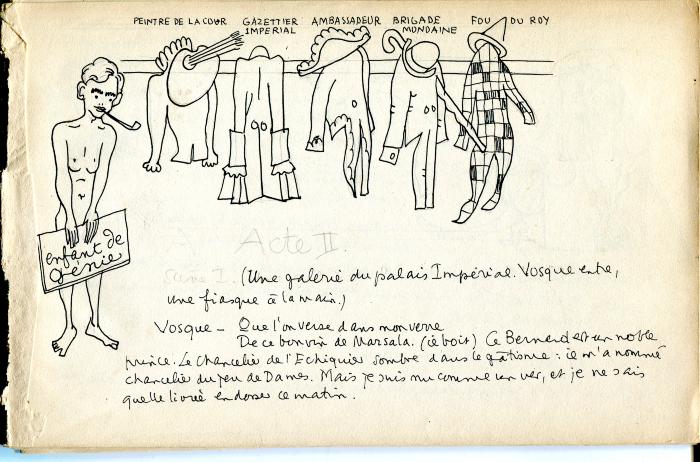 PEINTRE DE LA COUR GAZETTIER IMPERIAL AMBASSADEUR BRIGADE MONDAINE FOU DU ROY
enfant de
génie
Acte II.
Scène I. (Une galerie du palais Impérial. Vosque entre,
une fiasque à la main.)
Vosque – Que l'on verse dans mon verre
De ce bon vin de Marsala. (il boit) Ce Bernard est un noble
prince. Le Chancelier de l'Echiquier sombre dans le gâtisme : il m'a nommé
chancelier du jeu de Dames. Mais je suis nu comme un ver, et je ne sais
quelle livrée endosser ce matin.